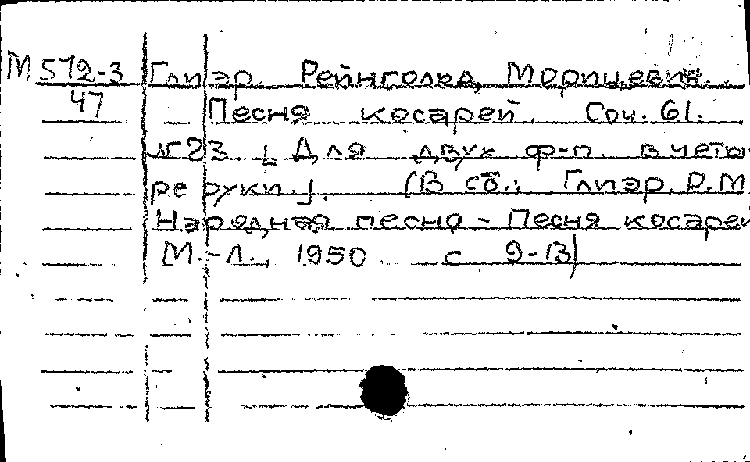 М 572-3 Глиэр, Рейнгольд Морицевич.
47 Песня косарей. Соч. 61.
№23. [Для двух ф-п. в четы-
ре руки.]. (В сб.: Глиэр, Р.М.
Народная песня - Песня косарей
М.-Л., 1950 с 9-13)